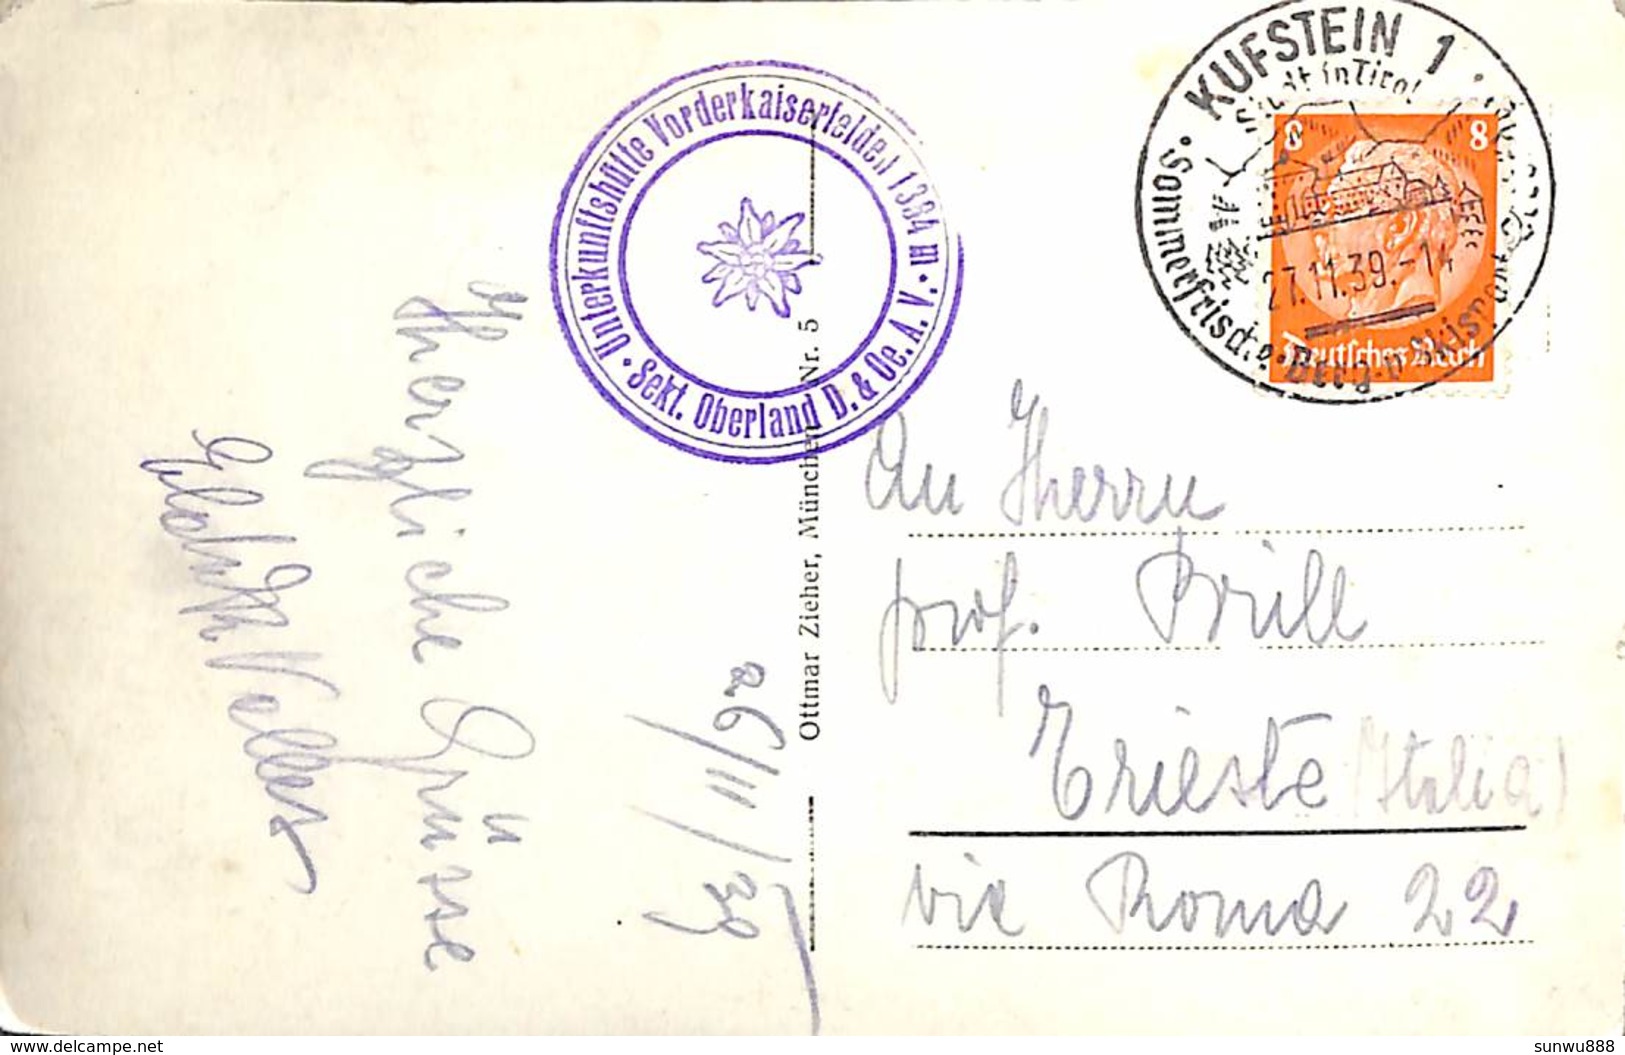 Herzliche Grüsse
26/11/39
Unterkunftshütte Vorderkaiserfelden 1384 m
Sekt. Oberland D. & Oe. A. V.
Ottmar Zieher, München Nr. 5
KUFSTEIN 1
Stadt in Tirol
Sommerfrische
27.11.39.-14
8 8
Deutsches Reich
An Herrn
prof. Brill
Trieste (Italia)
via Roma 22
www.delcampe.net
sunwu888